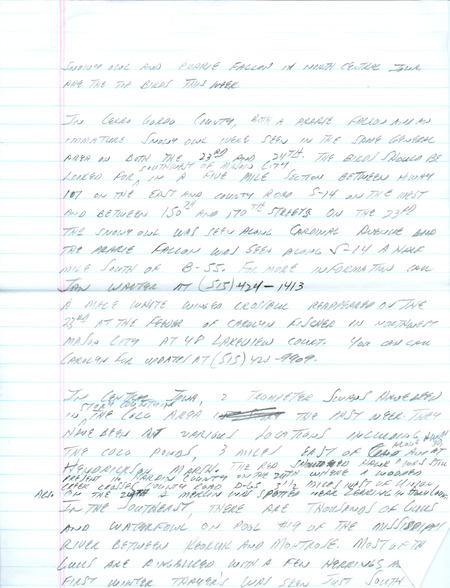 SNOWY OWL AND PRARIE FALCON IN NORTH CENTRAL IOWA
ARE THE TOP BIRDS THIS WEEK.
IN CERRO GORDO COUNTY, BOTH A PRARIE FALCON AND AN
IMMATURE SNOWY OWL WERE SEEN IN THE SAME GENERAL
AREA ON BOTH THE 23RD AND 24TH. THE BIRDS SHOULD BE
SOUTHEAST OF MASON CITY
LOOKED FOR, IN A FIVE MILE SECTION BETWEEN HIWAY
107 ON THE EAST AND COUNTY ROAD S-14 ON THE WEST
AND BETWEEN 150TH AND 170TH STREETS. ON THE 23RD
THE SNOWY OWL WAS SEEN ALONG CARDINAL AVENUE AND
THE PRARIE FALCON WAS SEEN ALONG S-14 A HALF
MILE SOUTH OF B-55. FOR MORE INFORMATION CALL
JAN WALTER AT (515) 424-1413
A MALE WHITE WINGED CROSSBILL REAPPEARED ON THE
23RD AT THE FEEDER OF CAROLYN FISCHER IN NORTHWEST
MASON CITY AT 48 LAKEVIEW COURT. YOU CAN CALL
CAROLYN FOR UPDATES AT (515) 423-9909.
IN CENTRAL IOWA, 2 TRUMPETER SWANS HAVE BEEN
STORY COUNTY
IN THE COLO AREA THE PAST WEEK. THEY
HAVE BEEN AT VARIOUS LOCATIONS INCLUDING
THE COLO PONDS, 3 MILES EAST OF COLO AND AT
HENDRICKSON MARSH. THE RED SHOULDERED HAWK WAS STILL
PRESENT IN HARDIN COUNTY ON THE 24TH WHERE A WOODED
CREEK CROSSES COUNTY ROAD D65 1/2 MILES WEST OF UNION.
ALSO ON THE 24TH A MERLIN WAS SPOTTED NEAR ZEARING IN STORY COUNTY.
IN THE SOUTHEAST, THERE ARE THOUSANDS OF GULLS
AND WATERFOWL ON POOL #19 OF THE MISSISSIPPI
RIVER BETWEEN KEOKUK AND MONTROSE. MOST OF TH
GULLS ARE RINGBILLED WITH A FEW HERRINGS. A
FIRST WINTER THAYER'S WAS SEEN JUST SOUTH